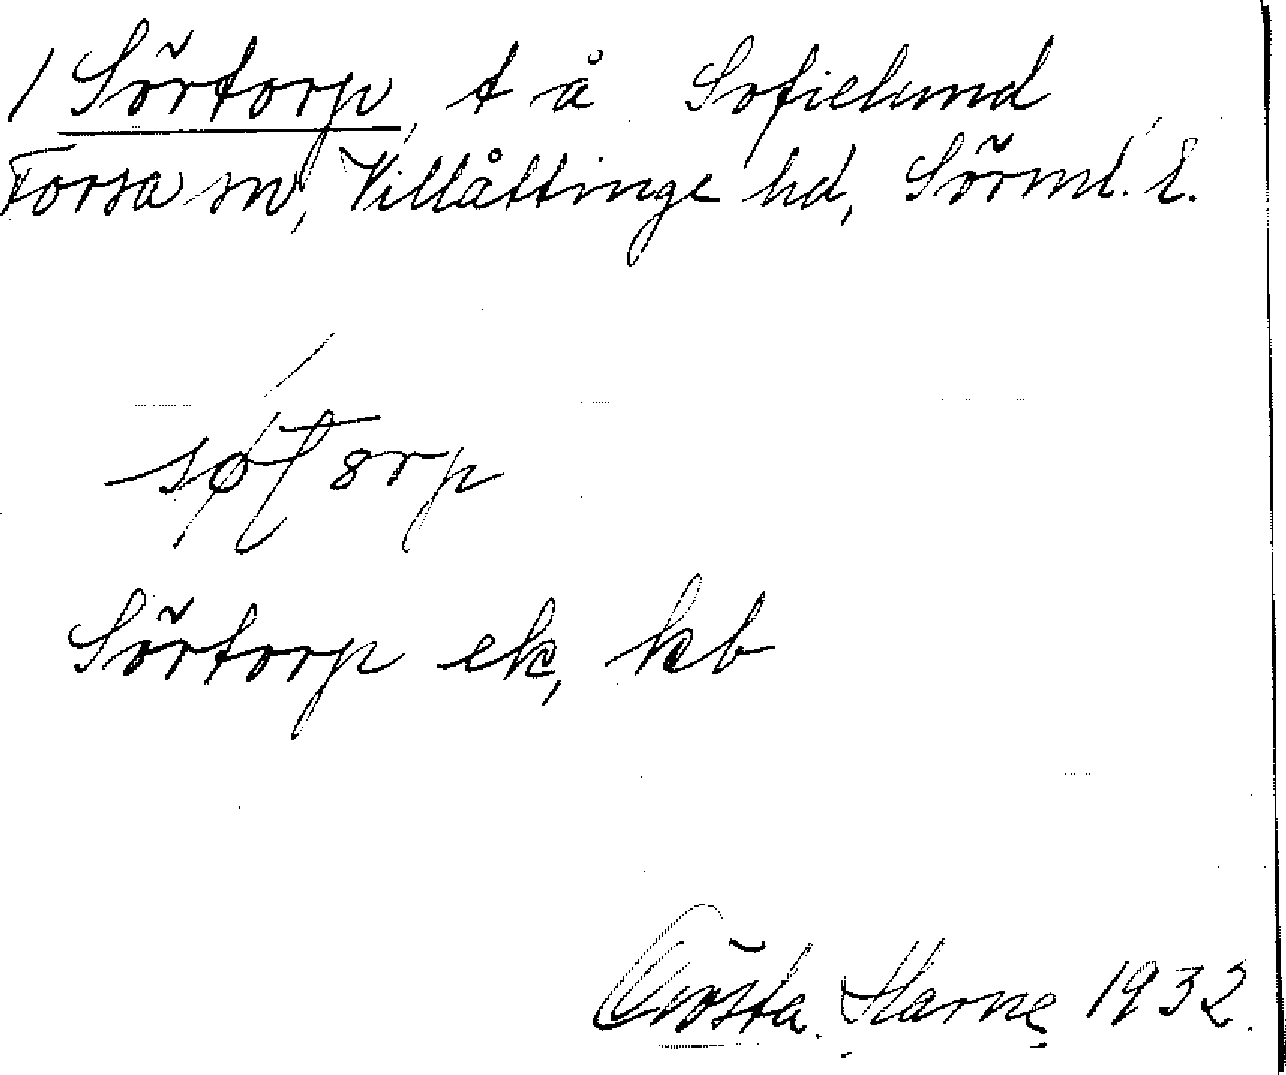 1 Sörtorp, t å Sofielund
Forsa sn, Villåttinge hd, Sörml. l.
Sörtorp ek, kb
Gösta Harne 1932.